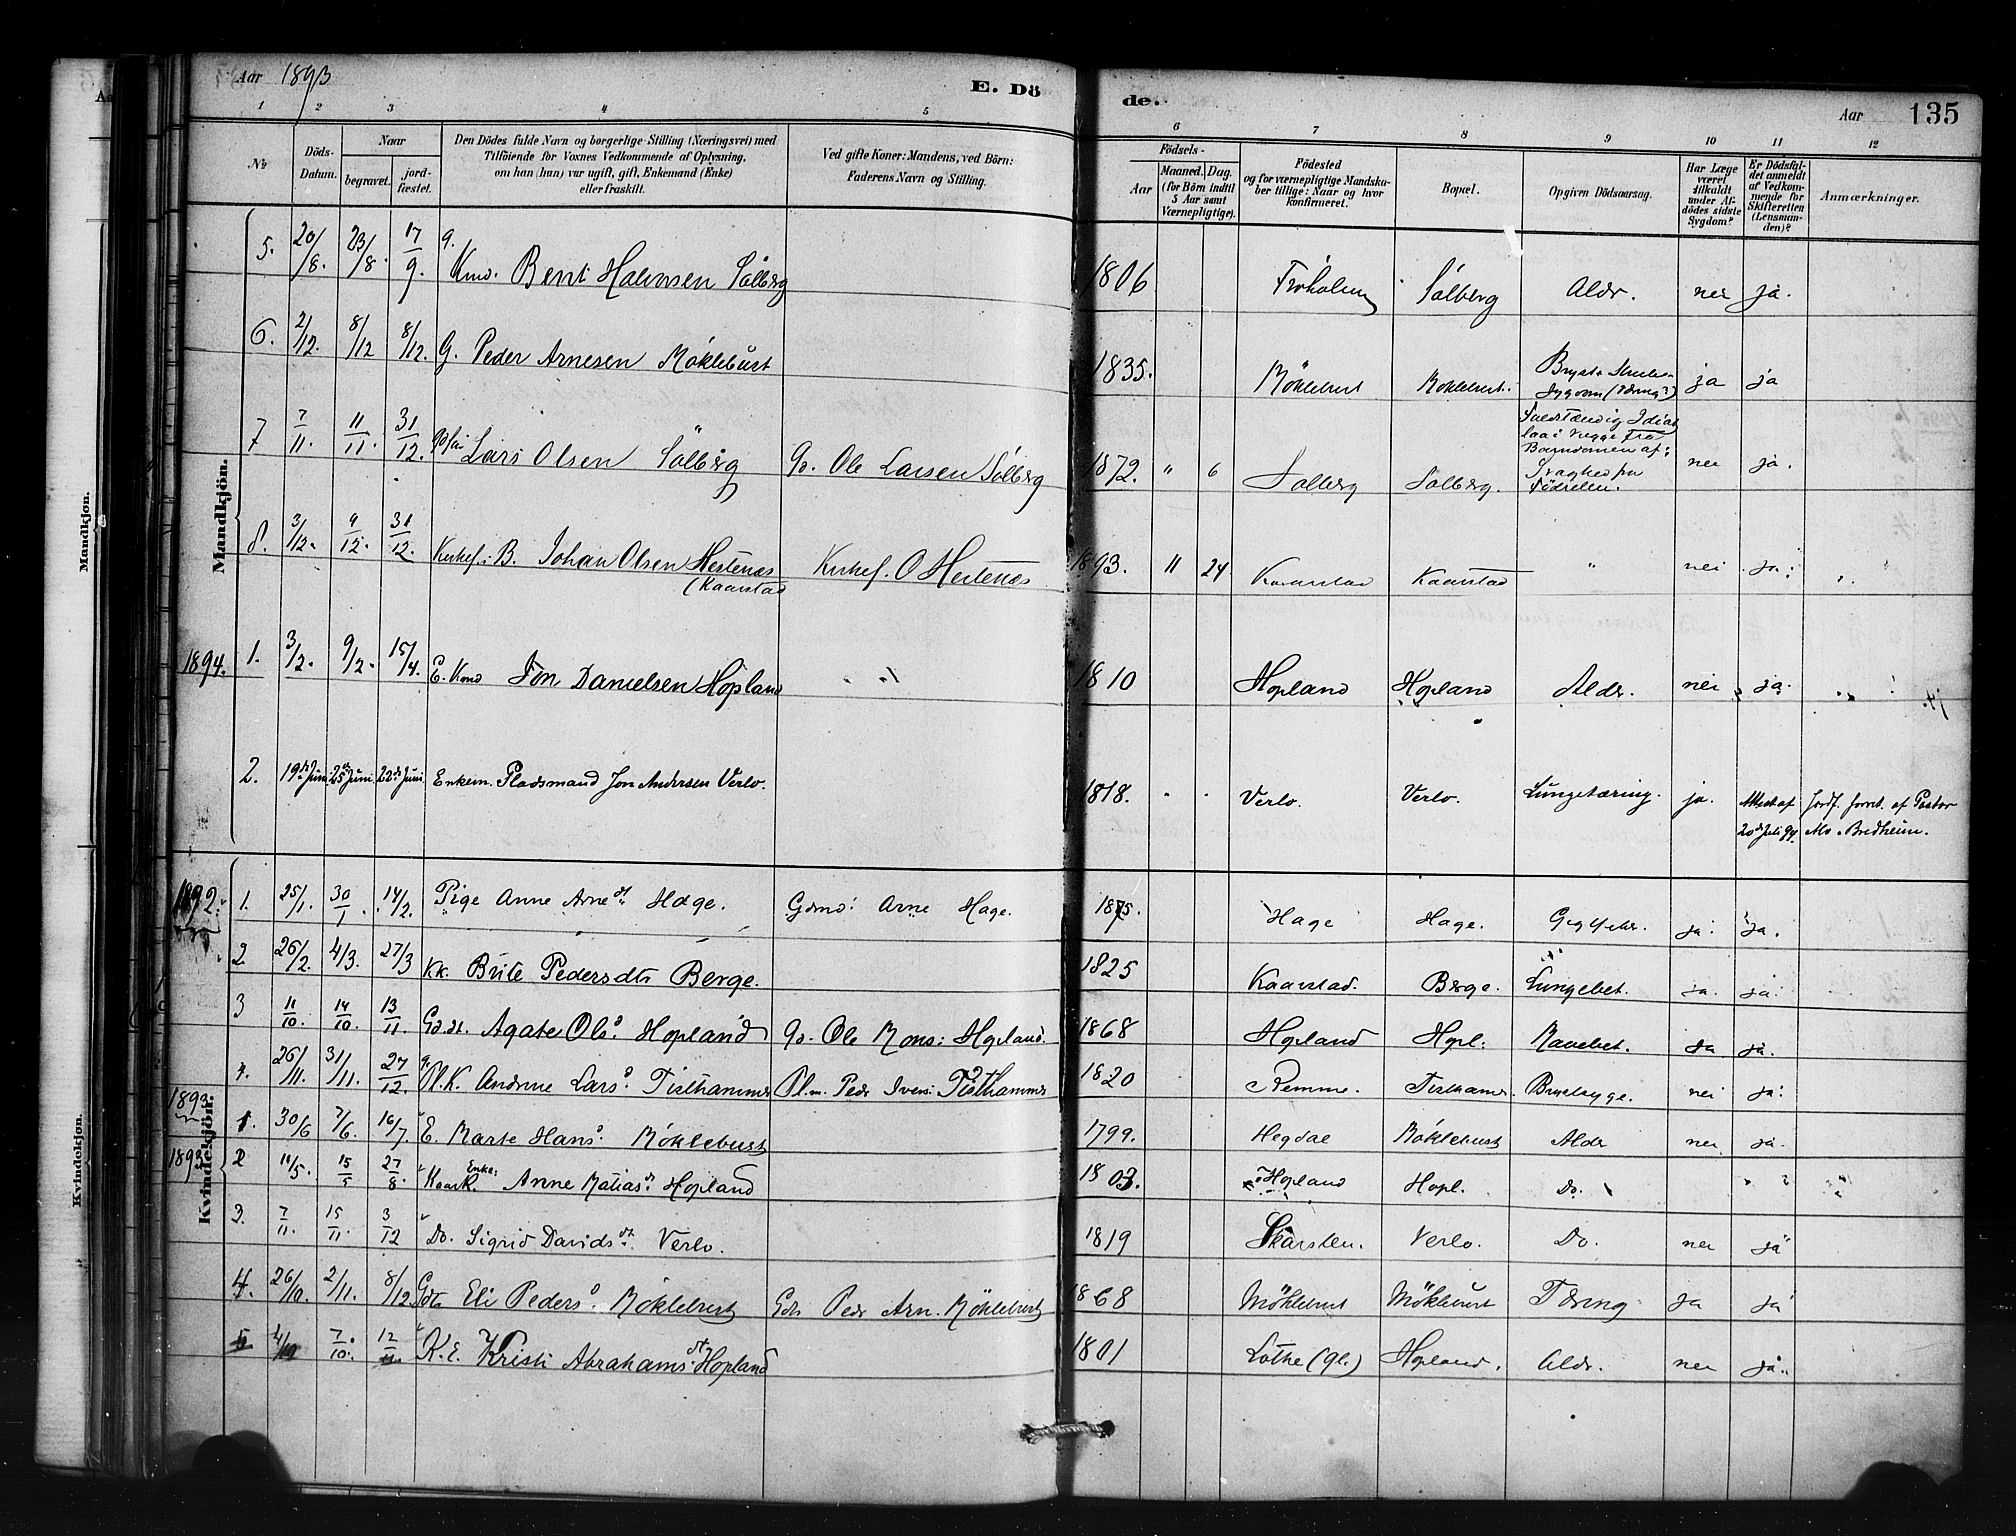 Aar 1893 E. Dö de. Aar 135
1 2 3 4 5 6 7 8 9 10 11 12
No
Döds-Datum.
Naar
begravet.
jord-fæstet.
Den Dödes fulde Navn og borgerlige Stilling (Næringsvei) med
Tilföiende for Voxnes Vedkommende af Oplysning,
om han (hun) var ugift, gift, Enkemand (Enke)
eller fraskilt.
Ved gifte Koner: Mandens, ved Börn:
Faderens Navn og Stilling.
Födsels-
Aar
Maaned. Dag.
(for Börn indtil
5 Aar samt
Værnepligtige).
Födested
og for værnepligtige Mandska-
ber tillige: Naar og hvor
konfirmeret.
Bopæl.
Opgiven Dödsaarsag.
Har Læge
været
tilkaldt
under Af-
dödes sidste
Sygdom?
Er Dödsfal-
det anmeldt
af Vedkom-
mende for
Skifteretten
(Lensman-
den)?
Anmærkninger.
Mandkjön.
5. 20/8. 23/8. 17/9. g. Kmd. Bent Solberg 1806 Solberg Aldr. nei ja.
6. 2/12. 8/12 8/12. G. Peder Arnesen Möklebust 1835. Möklebust Möklebust. ja ja
7 7/11. 11/11. 31/12. Lars Olsen Solberg G. Ole Larsen Solberg 1872. " 6 Solberg Solberg. Idiot fra Födselen. nei ja.
8. 3/12. 9/12. 31/12. Kirkes. B. Johan Olsen Hestenæs Kirkes. O Hestenæs 1893. 11 24. Kaarstad Kaarstad " nei ja.
(Kaarstad
1894. 1. 3/2. 9/2. 15/4. E. Kmd Jon Danielsen Hopland 1810 Hopland Hopland Aldr. nei ja.
2. 19de Juni 25de Juni 22de Juni Enkem. Pladsmand Jon Andersen Verlo. 1818. Verlo. Verlo. Lungetæring. ja. Attest af Jordf. forret. af Pastor
20de Juli 94. Mo. Bredheim.
Kvindekjön.
1892. 1. 25/1. 30/1. 14/2. Pige Anne Arnedt. Hage. Gdmd: Arne Hage. 1875. Hage Hage. ja. ja.
2. 26/2. 4/3. 27/3 Kk. Brite Pedersdtr Berge. 1825 Kaarstad. Berge. Lungebet. ja. ja.
3 11/10. 14/10. 13/11. Gd.dt. Agate Ols. Hopland G. Ole Mons: Hopland. 1868 Hopland Hopl. Mavebet. ja ja.
4. 26/11. 31/11. 27/12. Pl.K. Andrine Lars. Tisthammer Pl.m. Peder Ivers: Tisthammer 1820 Remme. Tisthamer. Brystsyge. nei ja.
1893. 1. 30/6 7/6. 16/7. E. Marte Hans. Möklebust 1799. Hegdal Möklebust Aldr nei ja.
1893 2 11/5. 15/5 27/8. Kaark. Enke. Anne Matias. Hopland 1803. Hopland Hopl. Do.
3. 7/11. 15/11. 3/12 Do. Sigrid Davidsdt. Verlo. 1819 Skarsten. Verlo. Do. nei ja
4. 26/10. 2/11. 8/12. Gdt. Eli Peders. Möklebust Gd. Pedr Arn. Möklebust 1868 Möklebust Möklebust Tæring ja ja
5 4/10 7/10. 12/11. K.E. Kristi Abrahamsdt. Hopland 1801 Lothe (Gl.) Hopland. Aldr. nei ja.
Aa
Mandkjön.
Kvindekjön.